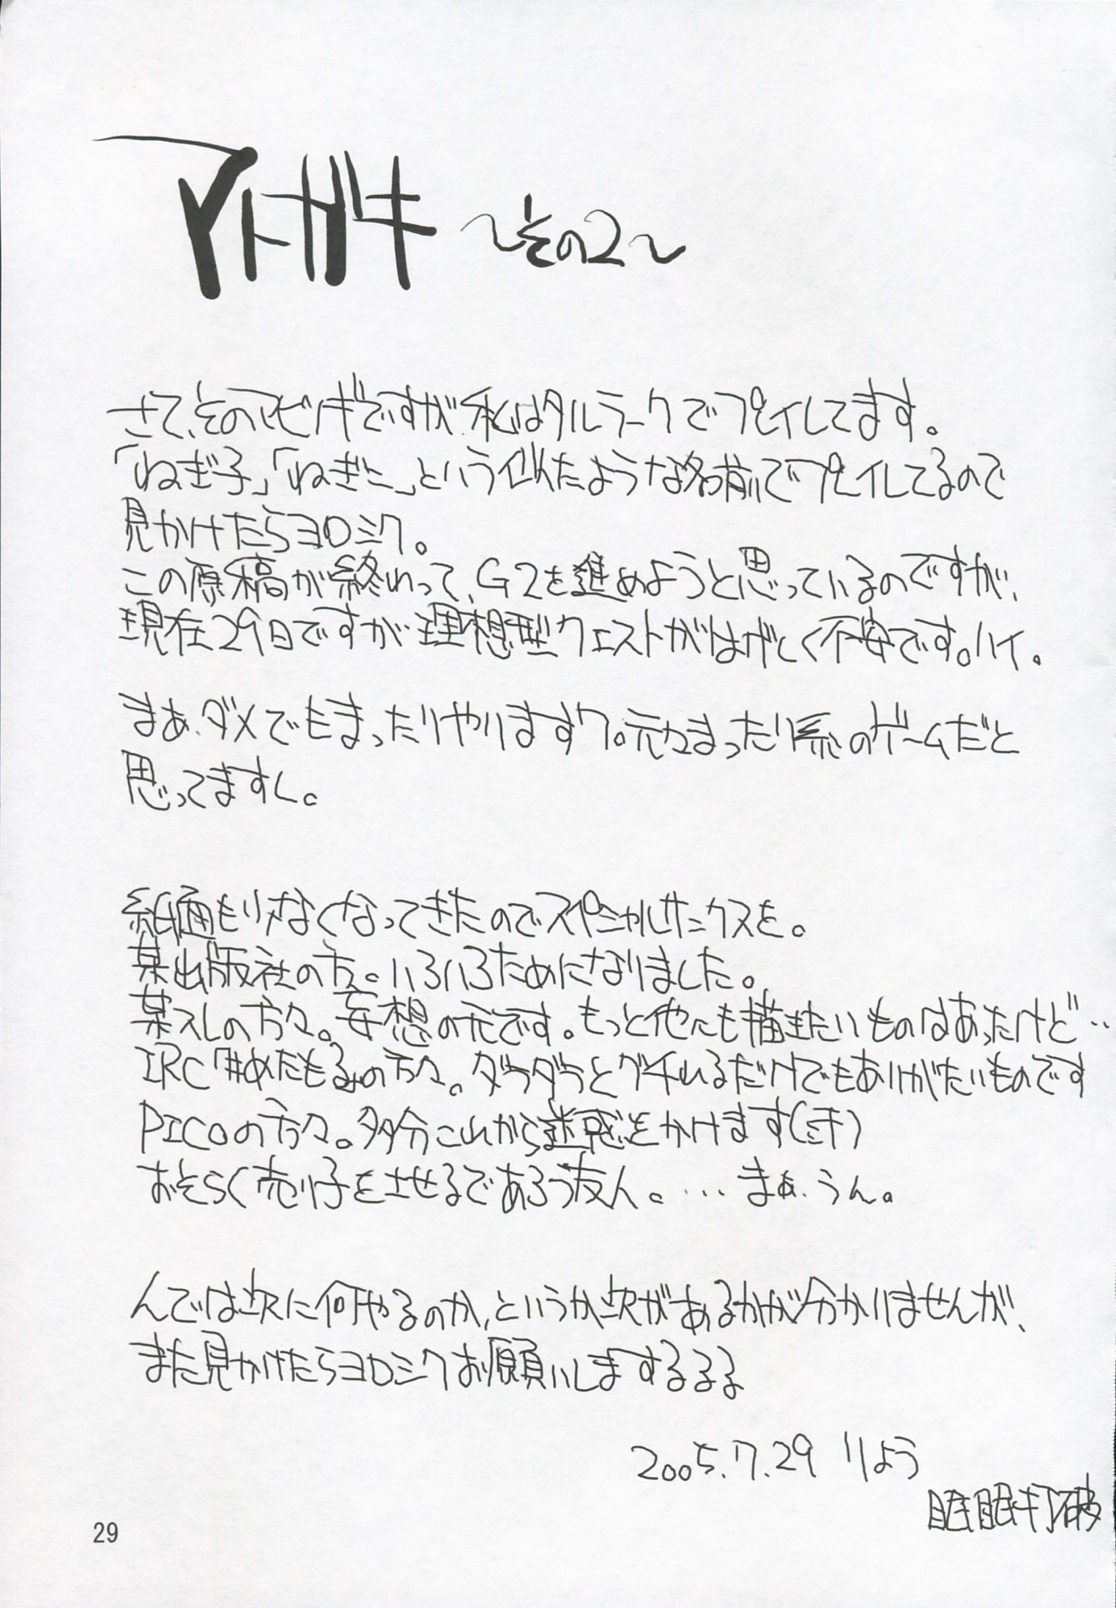 アトガキ ～その2～
さて、そのマビノギですが、私はタルラークでプレイしてます。
「ねぎ子」「ねぎこ」という似たような名前でプレイしてるので
見かけたらヨロシク。
この原稿が終わって、G2を進めようと思っているのですが、
現在29日ですが理想型クエストがはげしく不安です。ハイ。
まぁ、ダメでもまったりやりますワ。元々まったり系のゲームだと
思ってますし。
紙面もソなくなってきたのでスペシャルサンクスを。
某出版社の方。いろいろためになりました。
某スレの方々。妄想の元です。もっと他にも描きたいものはあったけど…
IRC「#めたもるみの方々。ダラダラとグチれるだけでもありがたいものです
PICOの方々。多分これから迷惑をかけます(汗)
おそらく売り子をさせるであろう友人。…まぁ、うん。
んでは次に何やるのか、というか次があるかが分かりませんが、
また見かけたらヨロシクお願いしまするるる
2005.7.29 りょう
眠眠打破
29